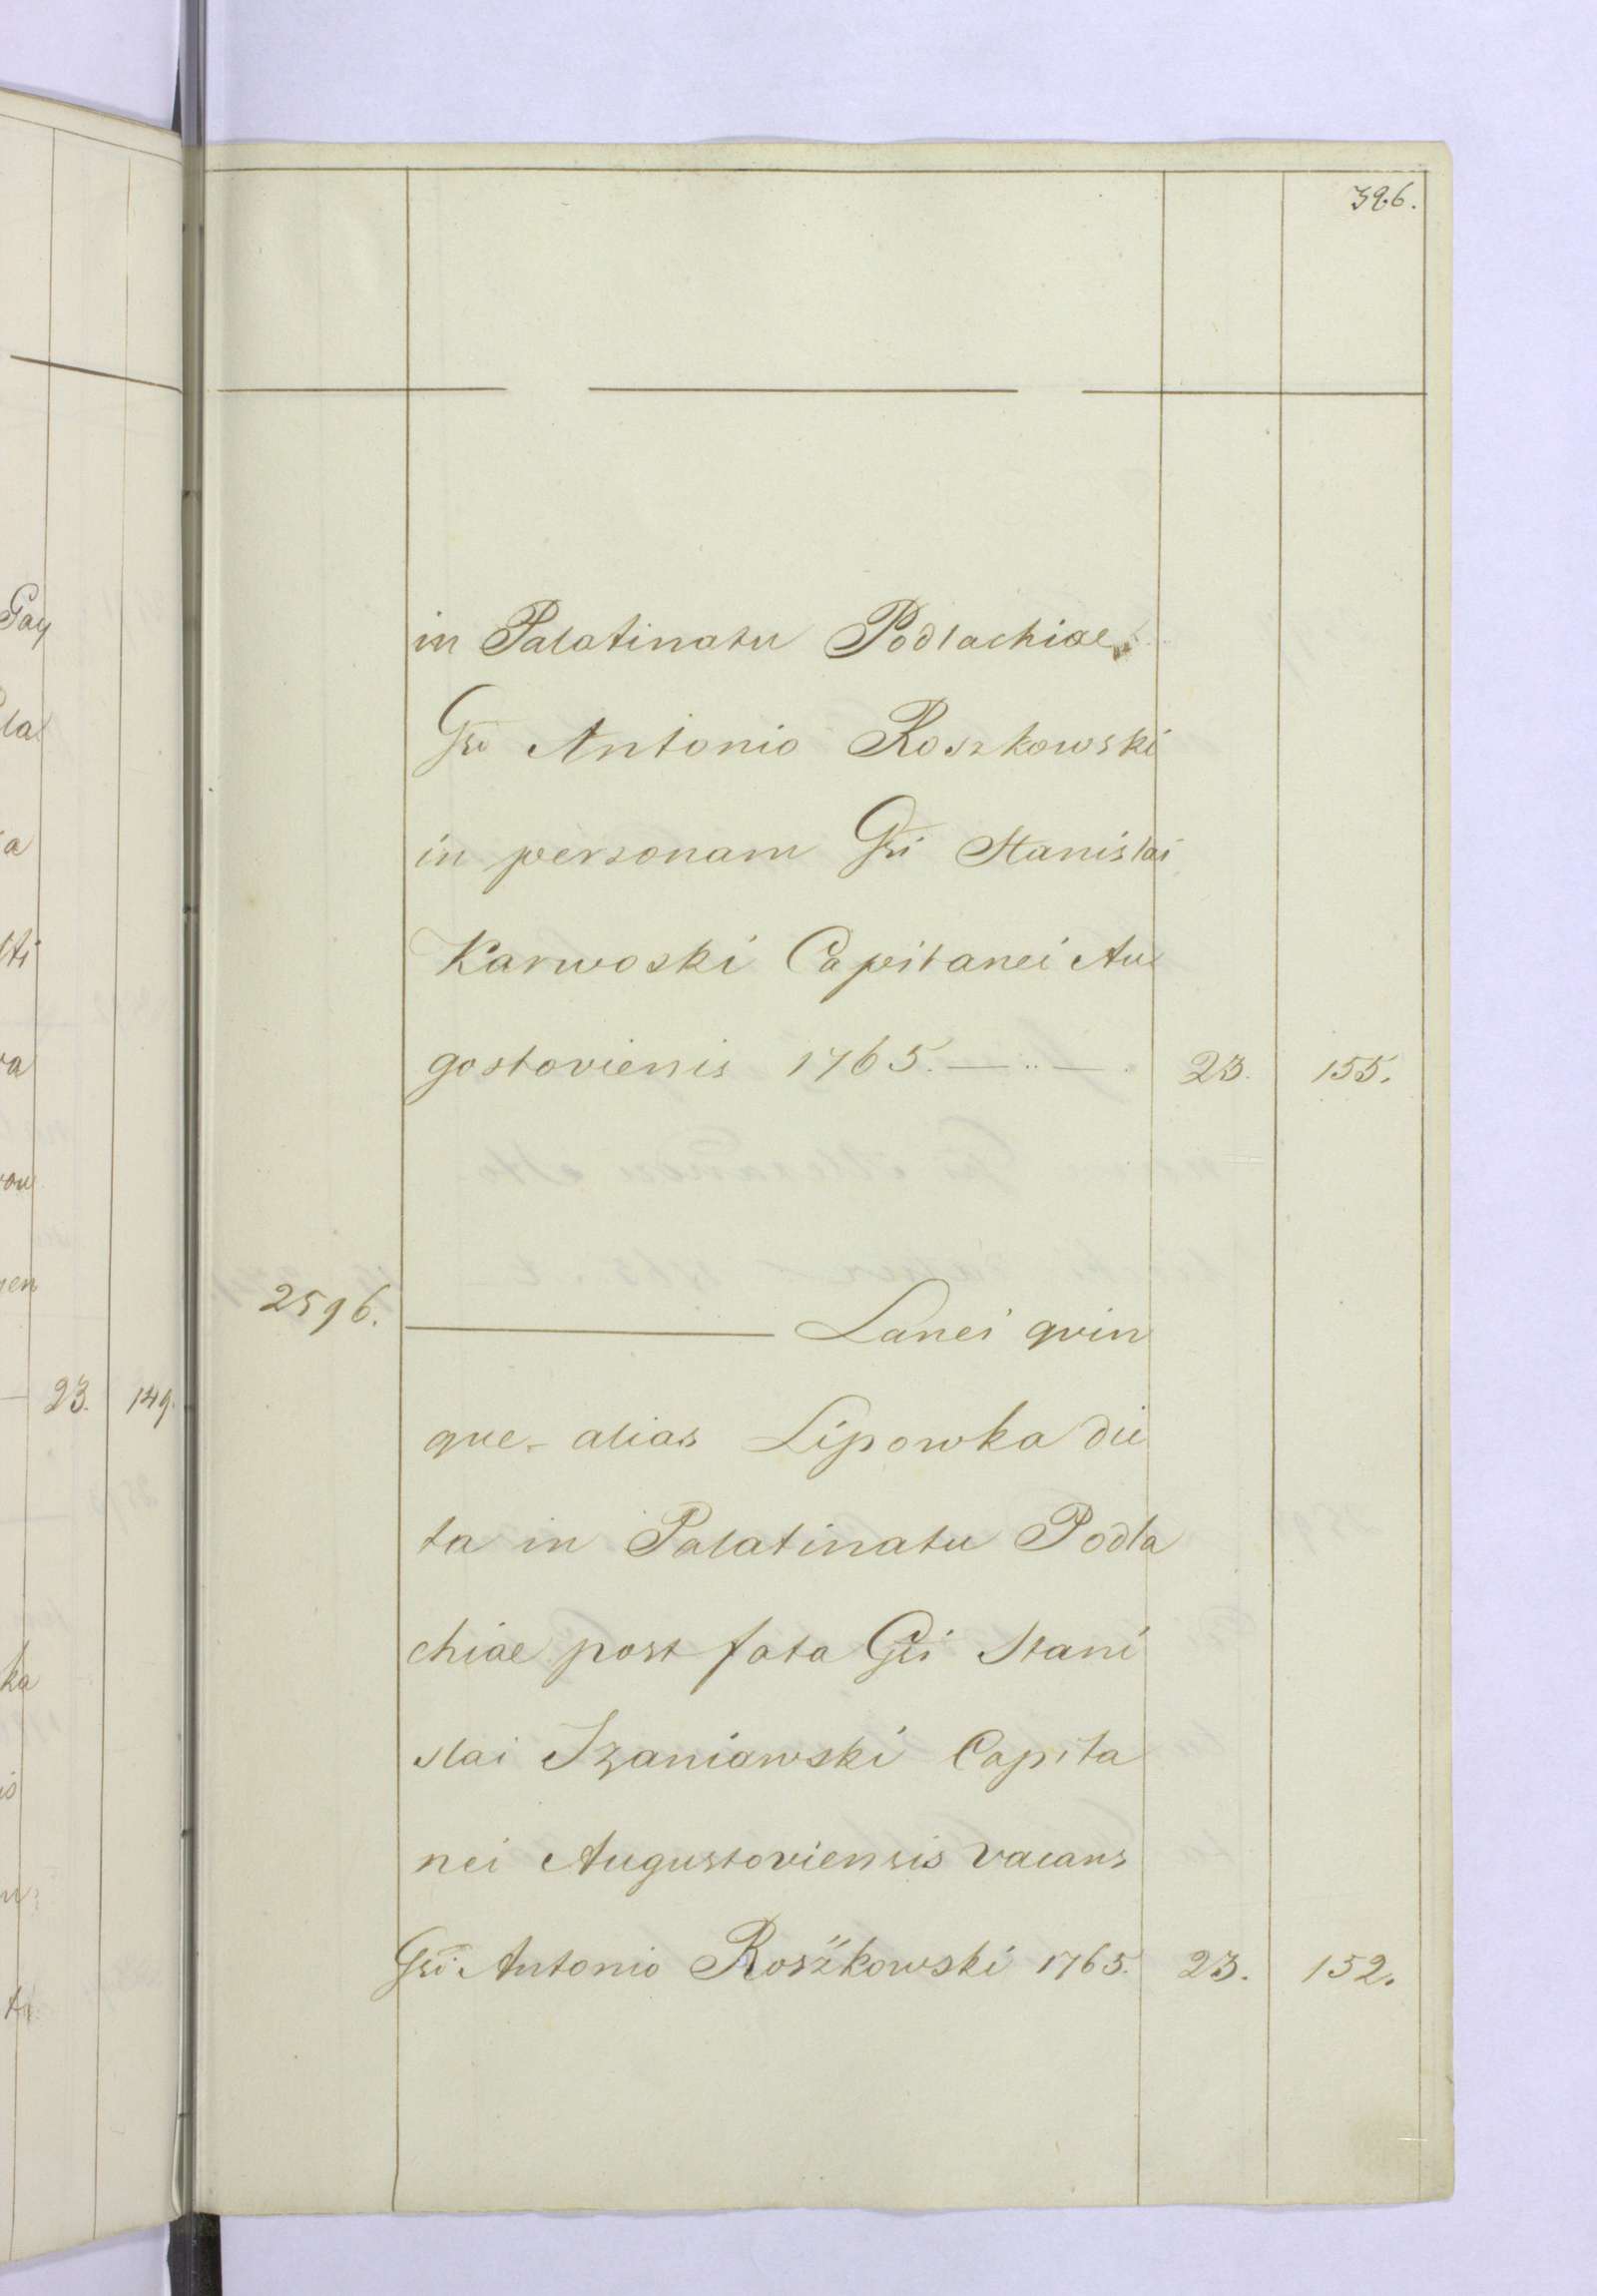 396.
in Palatinatu Podlachiae.
Gso Antonio Roszkowski
in personam Gsi Stanislai
Karwoski Capitanei Au
gostoviensis 1765. — .. — . 23. 155.
2596. ——— Lanei quin
que - alias Lipowka dic
ta in Palatinatu Podla
chiae post fata Gsi Stani
slai Szaniawski Capita
nei Augustoviensis vacans
Gsi Antonio Roszkowski 1765. 23. 152.
23. 149.